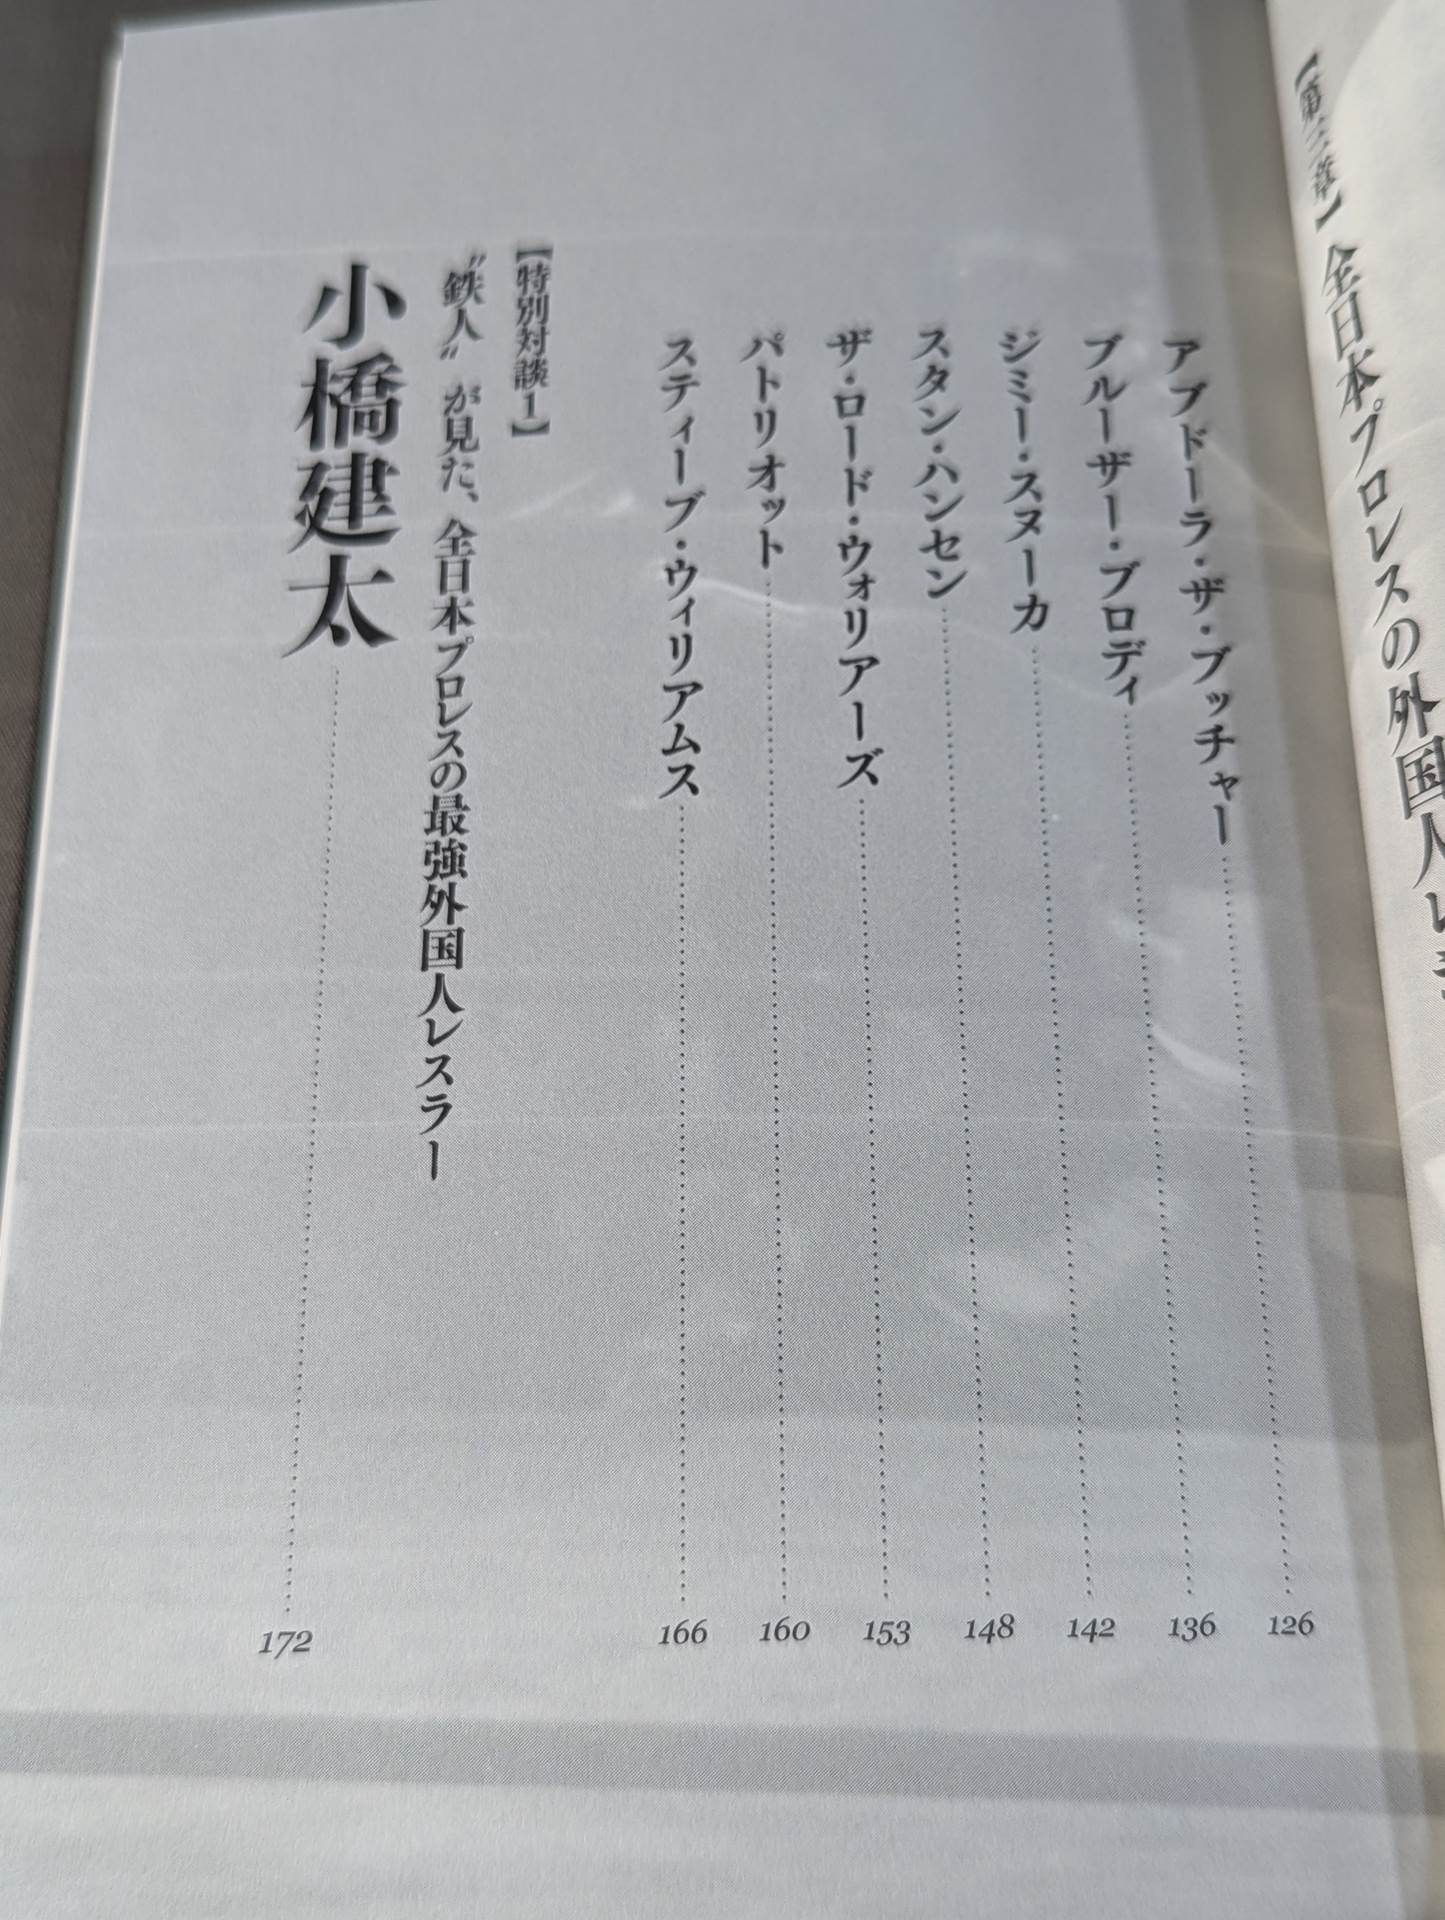 【第三章】全日本プロレスの外国人レ
アブドーラ・ザ・ブッチャー 126
ブルーザー・ブロディ 136
ジミー・スヌーカ 142
スタン・ハンセン 148
ザ・ロード・ウォリアーズ 153
パトリオット 160
スティーブ・ウィリアムス 166
【特別対談1】
〝鉄人〟が見た、全日本プロレスの最強外国人レスラー
小橋建太 172